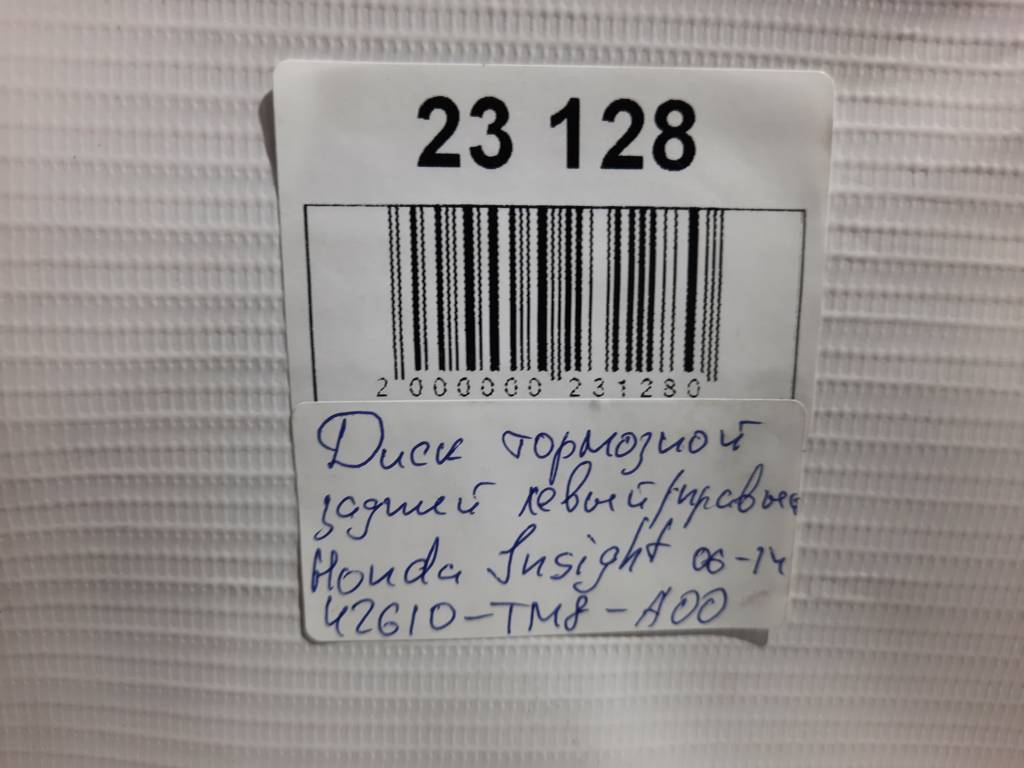 23 128
2 000000 231280
Диск тормозной
задний левый/правый
Honda Insight 06-14
42610-TM8-A00